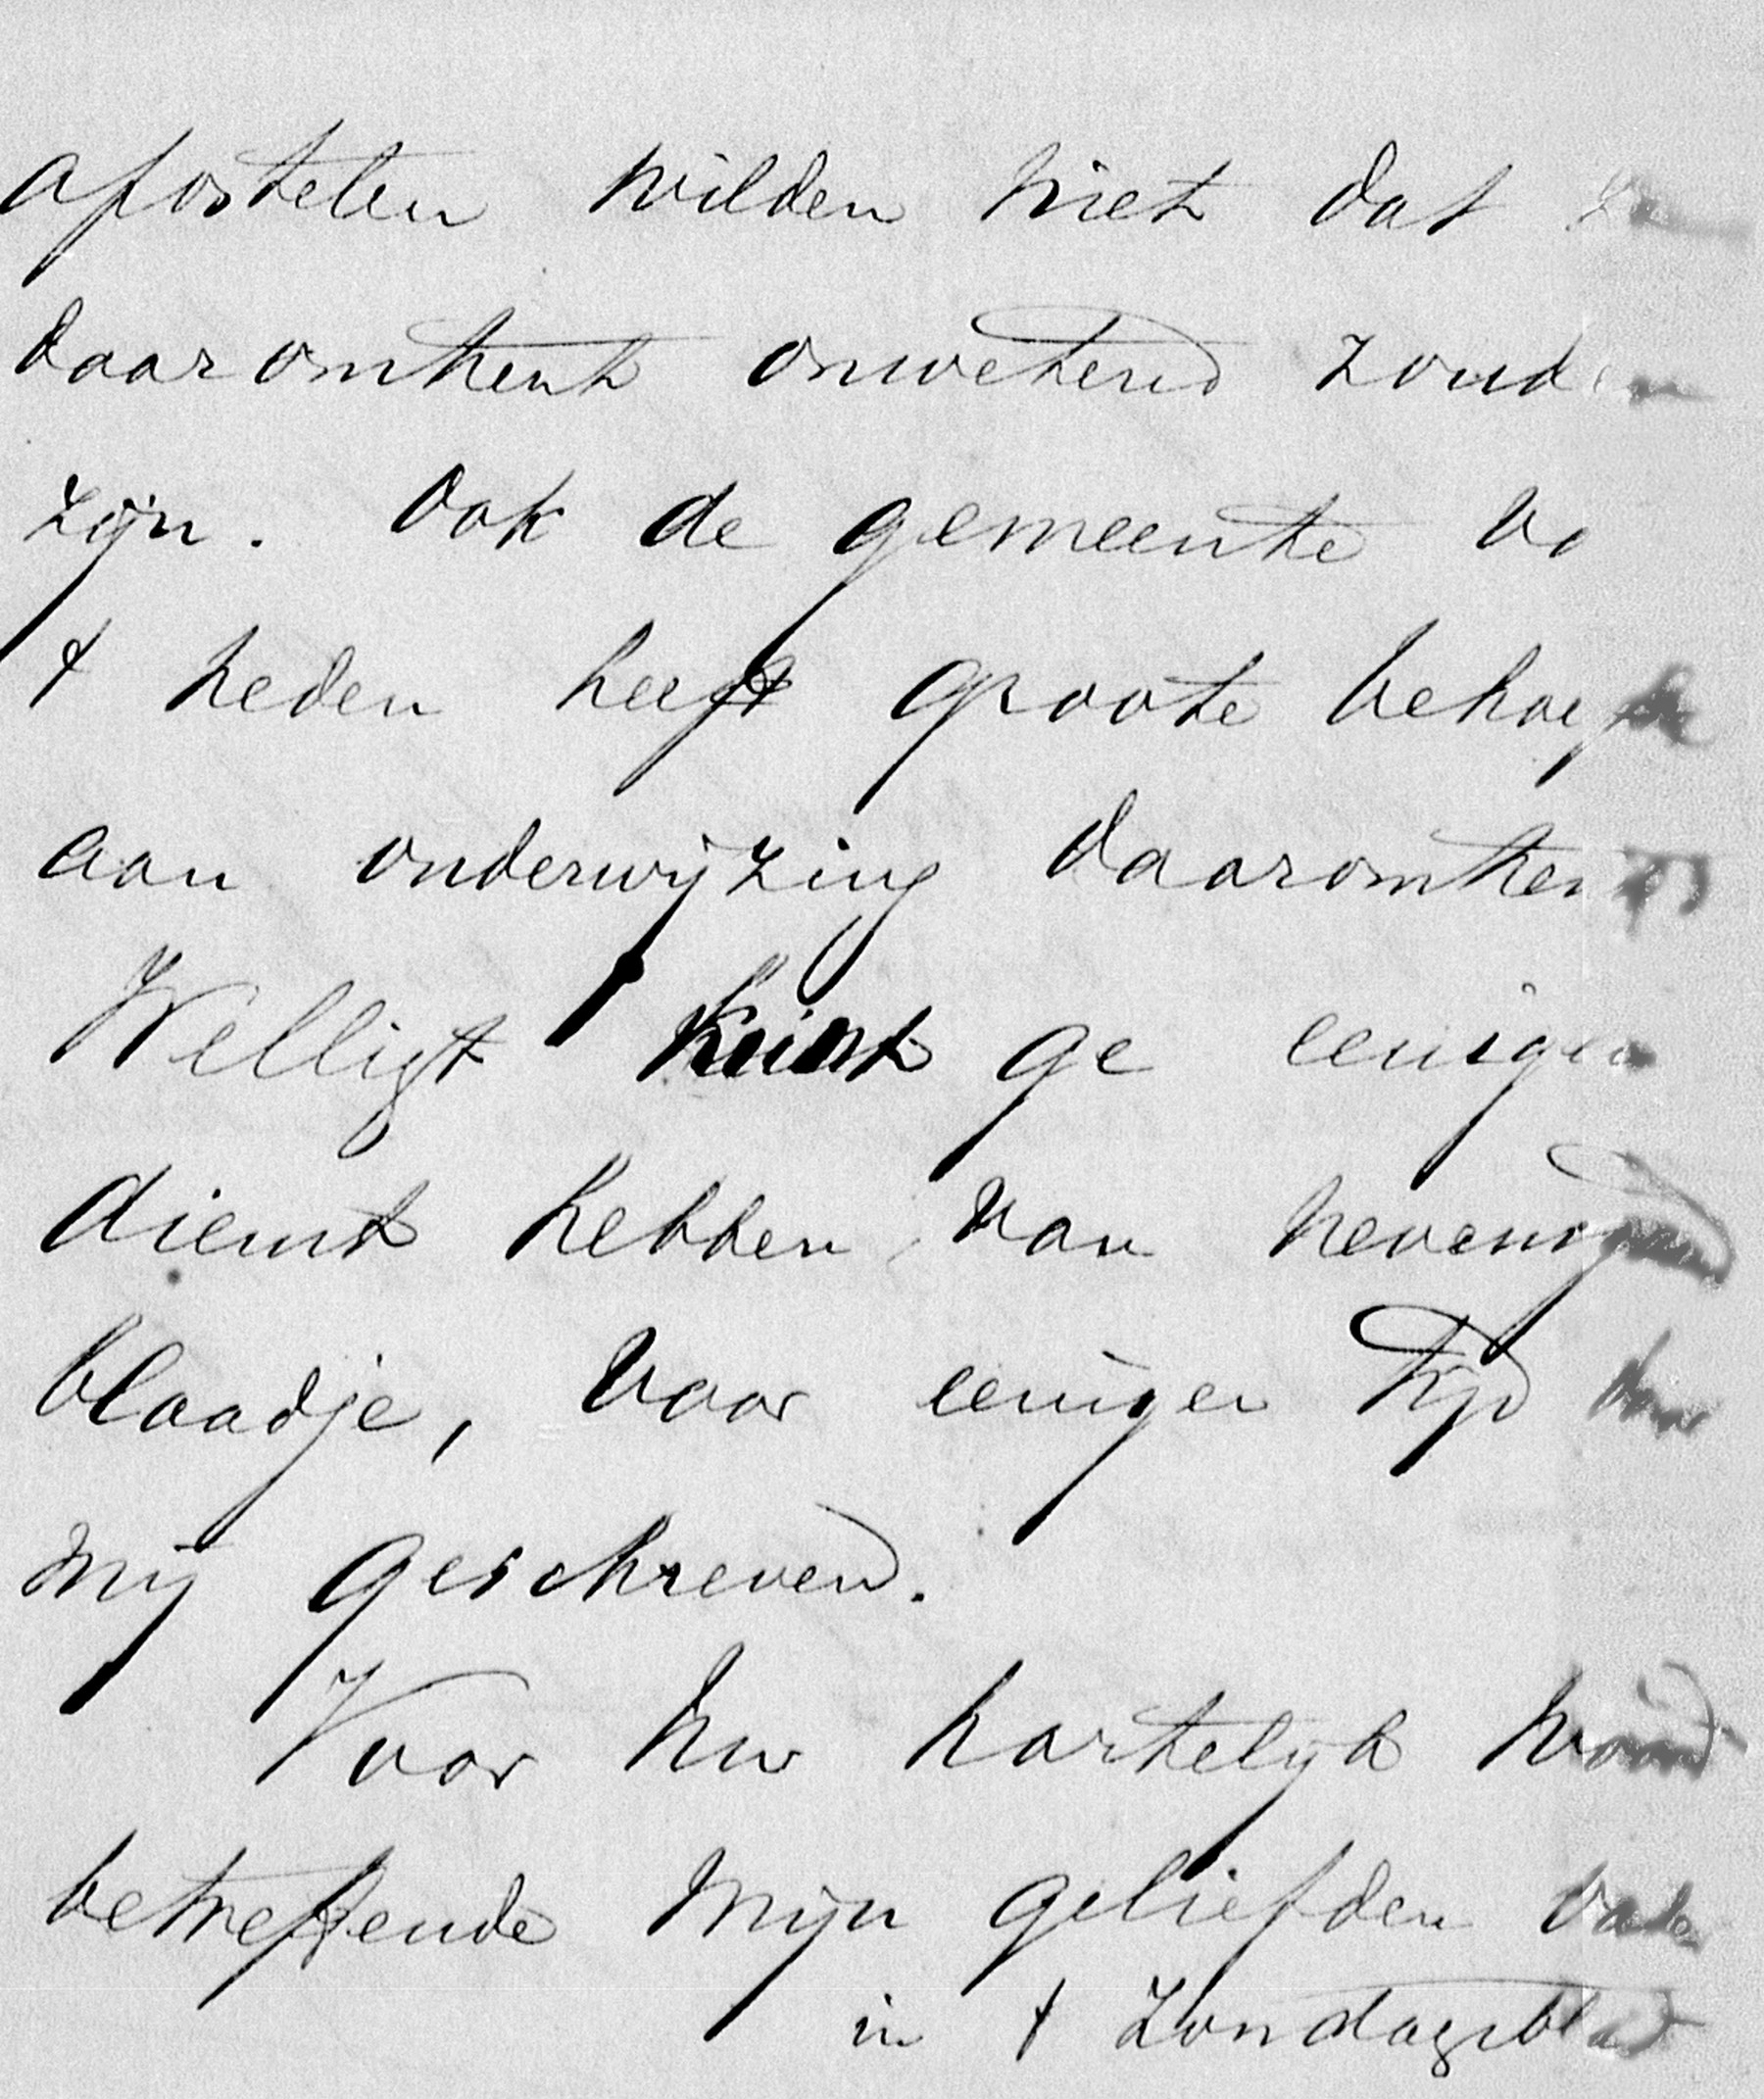 apostelen wilden niet dat
daaromtrent onwetend zouden
zijn. Ook de gemeente
t heden heeft groote behoefte
aan onderwijzing daaromtrent
Welligt kunt ge eenigen
dienst hebben van nevensg
blaadje, voor eenigen tijd door
mij geschreven.
Voor Uw hartelijk woord
betreffende mijn geliefden vader
in t Zondagsblad